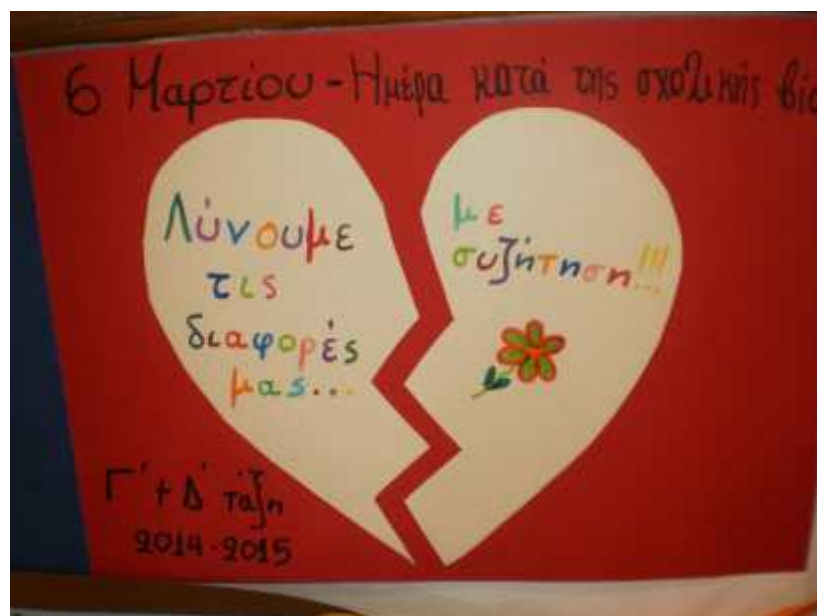 6 Μαρτίου - Ημέρα κατά της σχολικής βία
Λύνουμε
τις
διαφορές
μας...
με
συζήτηση...!!!
Γ' + Δ' τάξη
2014-2015